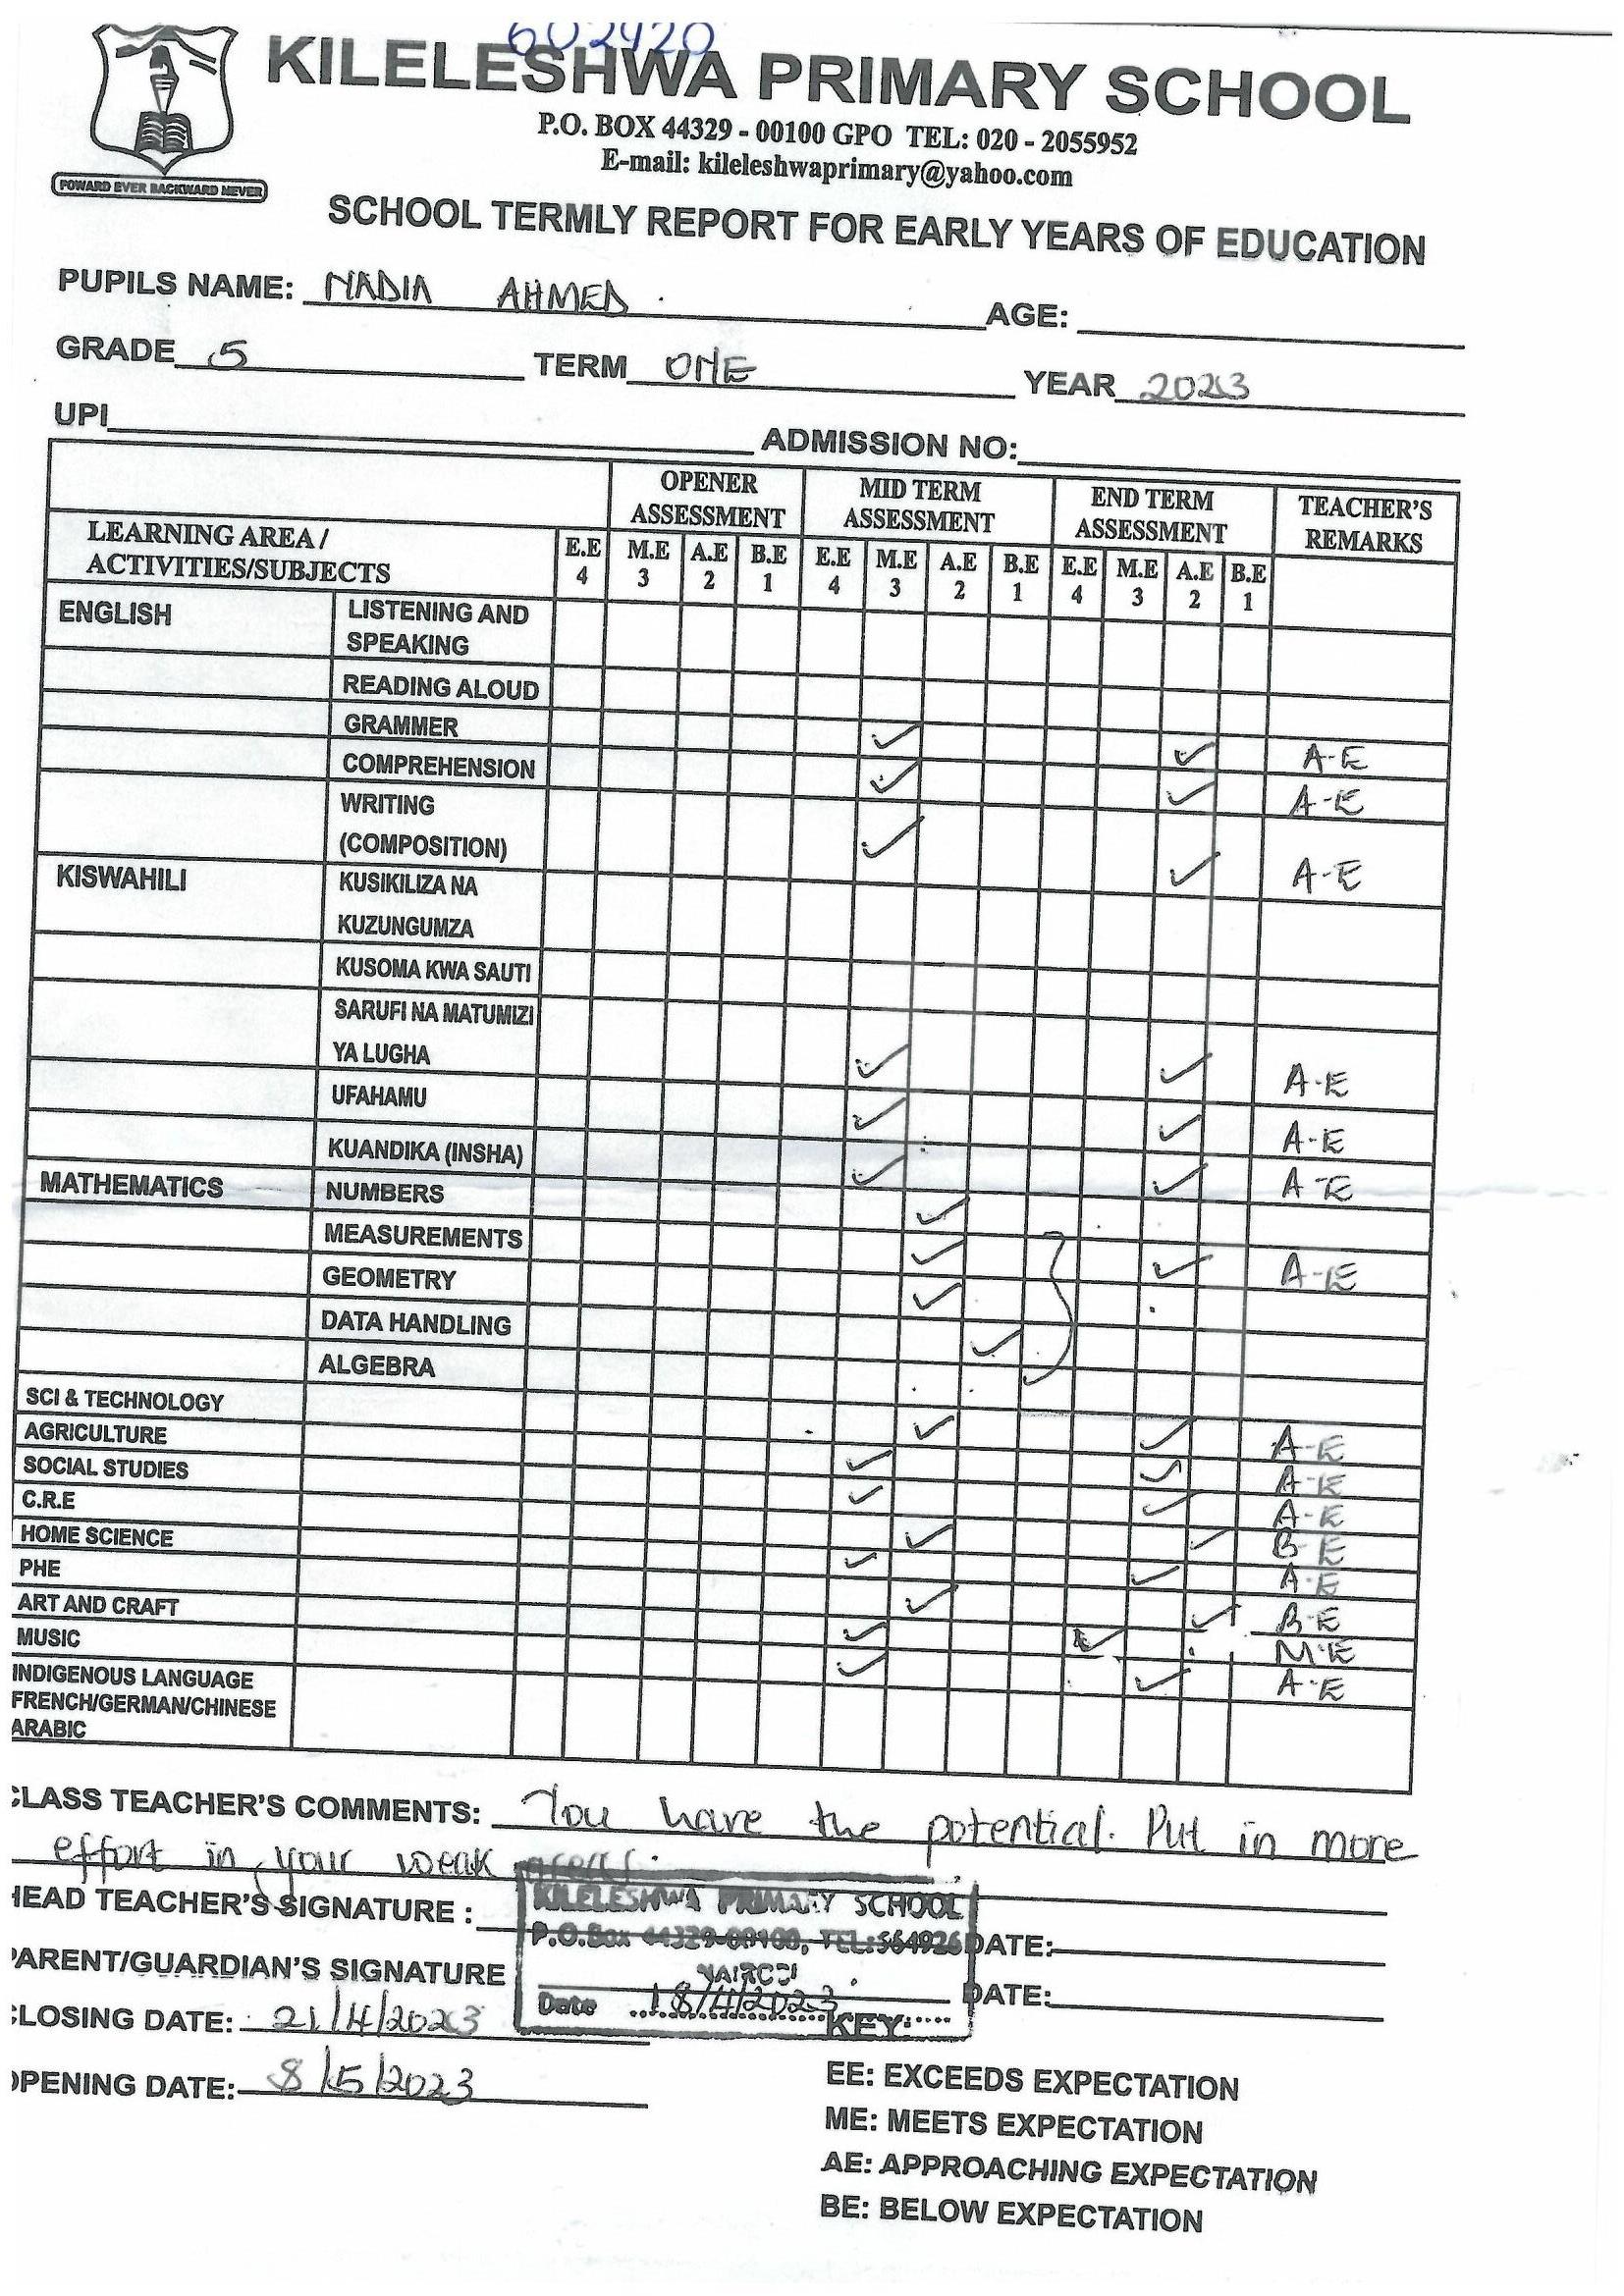 602420
KILELESHWA PRIMARY SCHOOL
P.O. BOX 44329 - 00100 GPO TEL: 020 - 2055952
E-mail: kileleshwaprimary@yahoo.com
FOWARD EVER BACKWARD NEVER
SCHOOL TERMLY REPORT FOR EARLY YEARS OF EDUCATION
PUPILS NAME: NADIA AHMED AGE:
GRADE 5 TERM ONE YEAR 2023
UPI ADMISSION NO:
OPENER ASSESSMENT MID TERM ASSESSMENT END TERM ASSESSMENT TEACHER'S REMARKS
LEARNING AREA / ACTIVITIES/SUBJECTS E.E 4 M.E 3 A.E 2 B.E 1 E.E 4 M.E 3 A.E 2 B.E 1 E.E 4 M.E 3 A.E 2 B.E 1
ENGLISH LISTENING AND SPEAKING
READING ALOUD
GRAMMER ✓ ✓ A-E
COMPREHENSION ✓ ✓ A-E
WRITING (COMPOSITION) ✓ ✓ A-E
KISWAHILI KUSIKILIZA NA KUZUNGUMZA
KUSOMA KWA SAUTI
SARUFI NA MATUMIZI YA LUGHA ✓ ✓ A-E
UFAHAMU ✓ ✓ A-E
KUANDIKA (INSHA) ✓ ✓ A-E
MATHEMATICS NUMBERS ✓
MEASUREMENTS ✓ ✓ A-E
GEOMETRY ✓
DATA HANDLING ✓
ALGEBRA
SCI & TECHNOLOGY ✓ ✓ A-E
AGRICULTURE ✓ ✓ A-E
SOCIAL STUDIES ✓ ✓ A-E
C.R.E ✓ ✓ B-E
HOME SCIENCE ✓ ✓ A-E
PHE ✓ ✓ B-E
ART AND CRAFT ✓ ✓ M-E
MUSIC ✓ ✓ A-E
INDIGENOUS LANGUAGE
FRENCH/GERMAN/CHINESE
ARABIC
CLASS TEACHER'S COMMENTS: You have the potential. Put in more
effort in your weak areas.
HEAD TEACHER'S SIGNATURE :
KILELESHWA PRIMARY SCHOOL
P.O.Box 44329-00100, TEL:564926
DATE:
PARENT/GUARDIAN'S SIGNATURE
NAIROBI
DATE:
Date 18/4/2023
CLOSING DATE: 21/4/2023
KEY:
OPENING DATE: 8/5/2023
EE: EXCEEDS EXPECTATION
ME: MEETS EXPECTATION
AE: APPROACHING EXPECTATION
BE: BELOW EXPECTATION